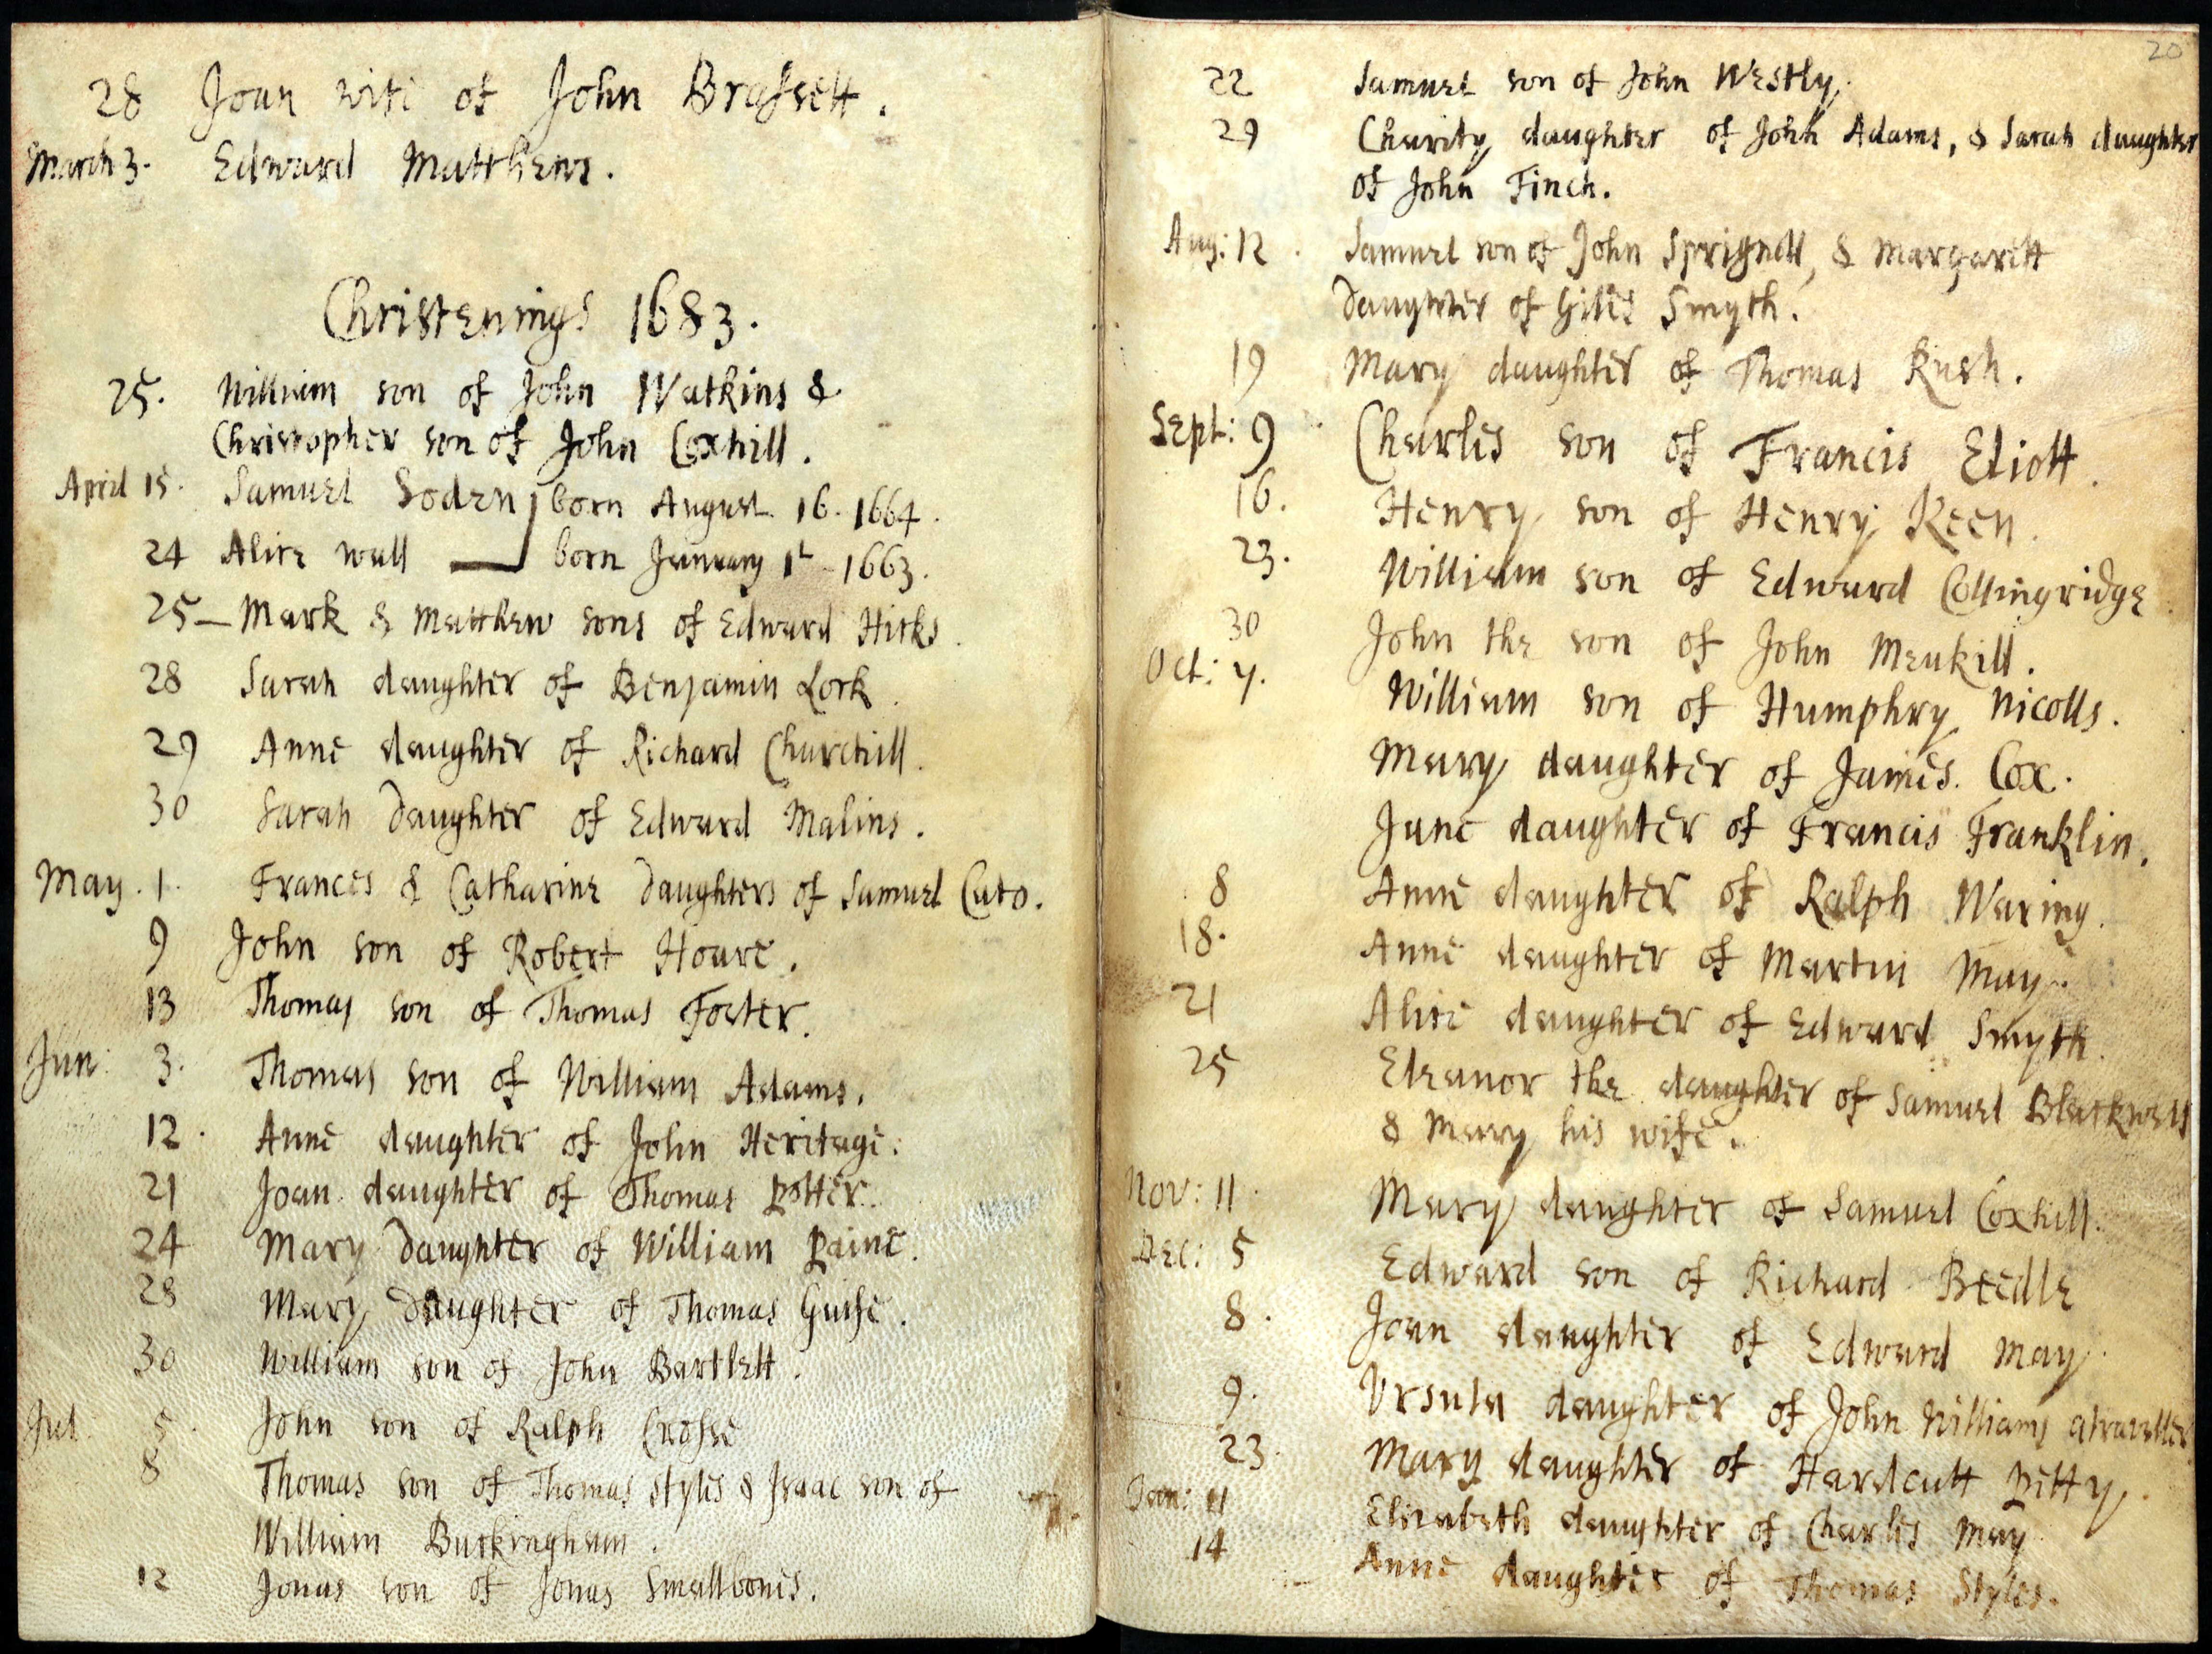 28 Joan wife of John Brassett.
March 3. Edward Matthews.
Christenings 1683.
25. William son of John Watkins &
Christopher son of John Coxhill.
April 15. Samuel Soden born August 16. 1664.
24 Alice Wall born January 1st 1663.
25 Mark & Matthew sons of Edward Hicks.
28 Sarah daughter of Benjamin Lock.
29 Anne daughter of Richard Churchill.
30 Sarah Daughter of Edward Malins.
May. 1. Frances & Catharine Daughters of Samuel Cato.
9 John son of Robert Hoare.
13 Thomas son of Thomas Foster.
Jun: 3. Thomas son of William Adams.
12. Anne daughter of John Heritage.
21 Joan daughter of Thomas Potter.
24 Mary Daughter of William Paine.
28 Mary Daughter of Thomas Guise.
30 William son of John Bartlett.
Jul 5. John son of Ralph Crosse
8 Thomas son of Thomas Styles & Isaac son of
William Buckingham.
12 Jonas son of Jonas Smallbones.
20
22 Samuel son of John Westly.
29 Charity daughter of John Adams, & Sarah daughter
of John Finch.
Aug: 12. Samuel son of John Sprignell, & Margarett
Daughter of Giles Smyth.
19 Mary daughter of Thomas Rush.
Sept: 9 Charles son of Francis Eliott.
16. Henry son of Henry Keen.
23. William son of Edward Collingridge
30 John the son of John Meukill.
Oct: 7. William son of Humphry Nicolls.
Mary daughter of James Cox.
Jane daughter of Francis Franklin.
8 Anne daughter of Ralph Waring.
18. Anne daughter of Martin May.
21 Alice daughter of Edward Smyth.
25 Eleanor the daughter of Samuel Blackwell
& Mary his wife.
Nov: 11. Mary daughter of Samuel Coxhill.
Dec: 5 Edward son of Richard Beedle
8. Joan daughter of Edward May.
9. Ursula daughter of John Williams a traveller
23. Mary daughter of Hardcutt Pitty.
Jan: 11 Elizabeth daughter of Charles May
14 Anne daughter of Thomas Styles.